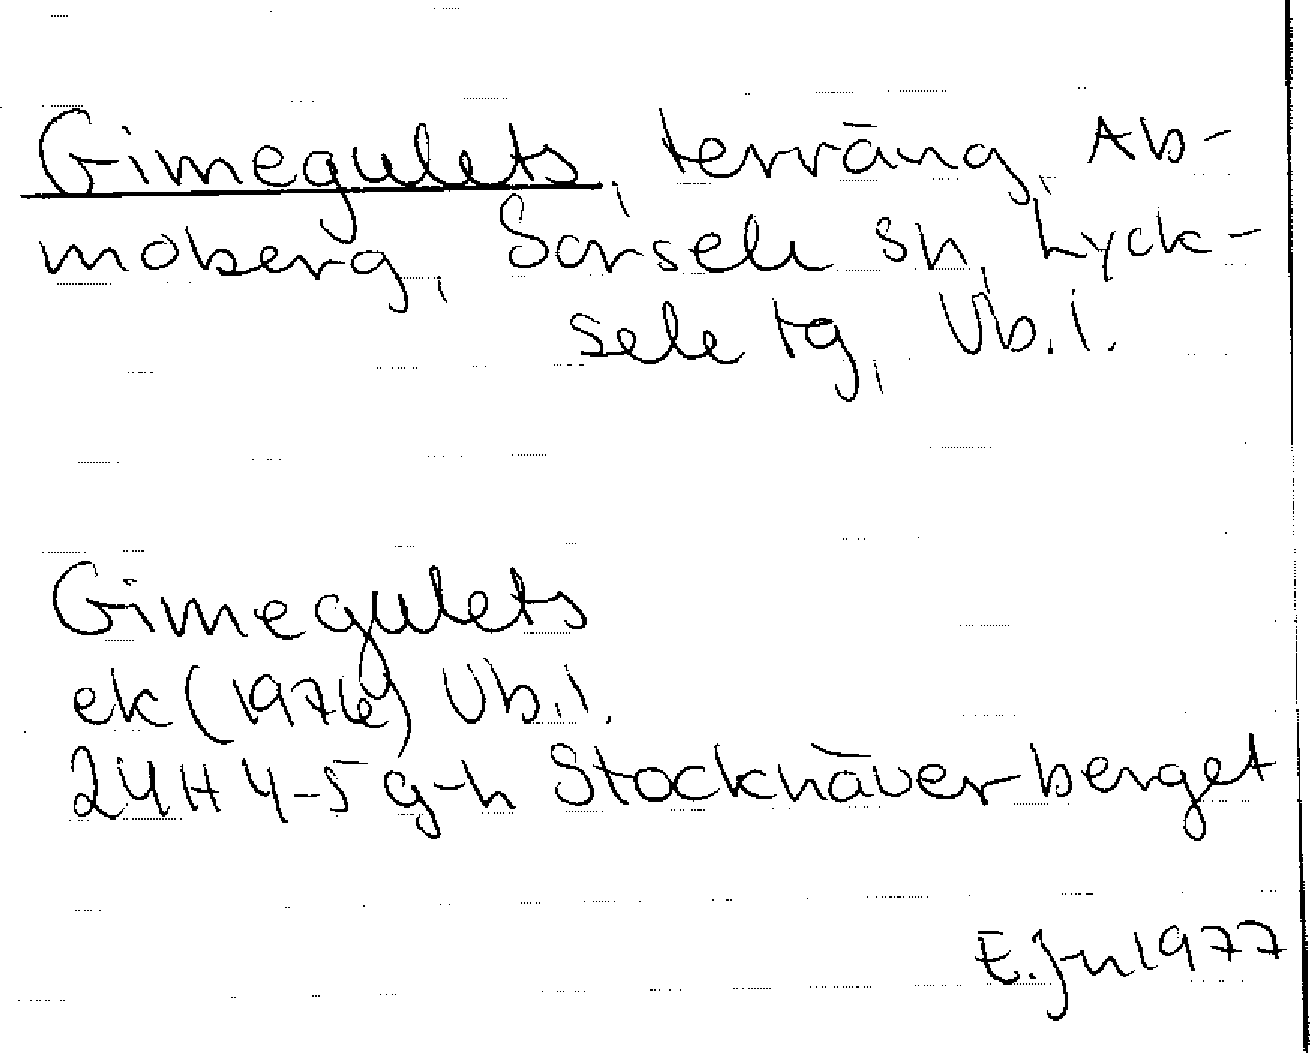 Gimegulets, terräng, Ab-
moberg, Sorsele sn, Lyck-
sele tg, Vb. l.
Gimegulets
ek (1976) Vb. l.
24H 4-5 g-h Stocknäverberget
E. J-n 1977